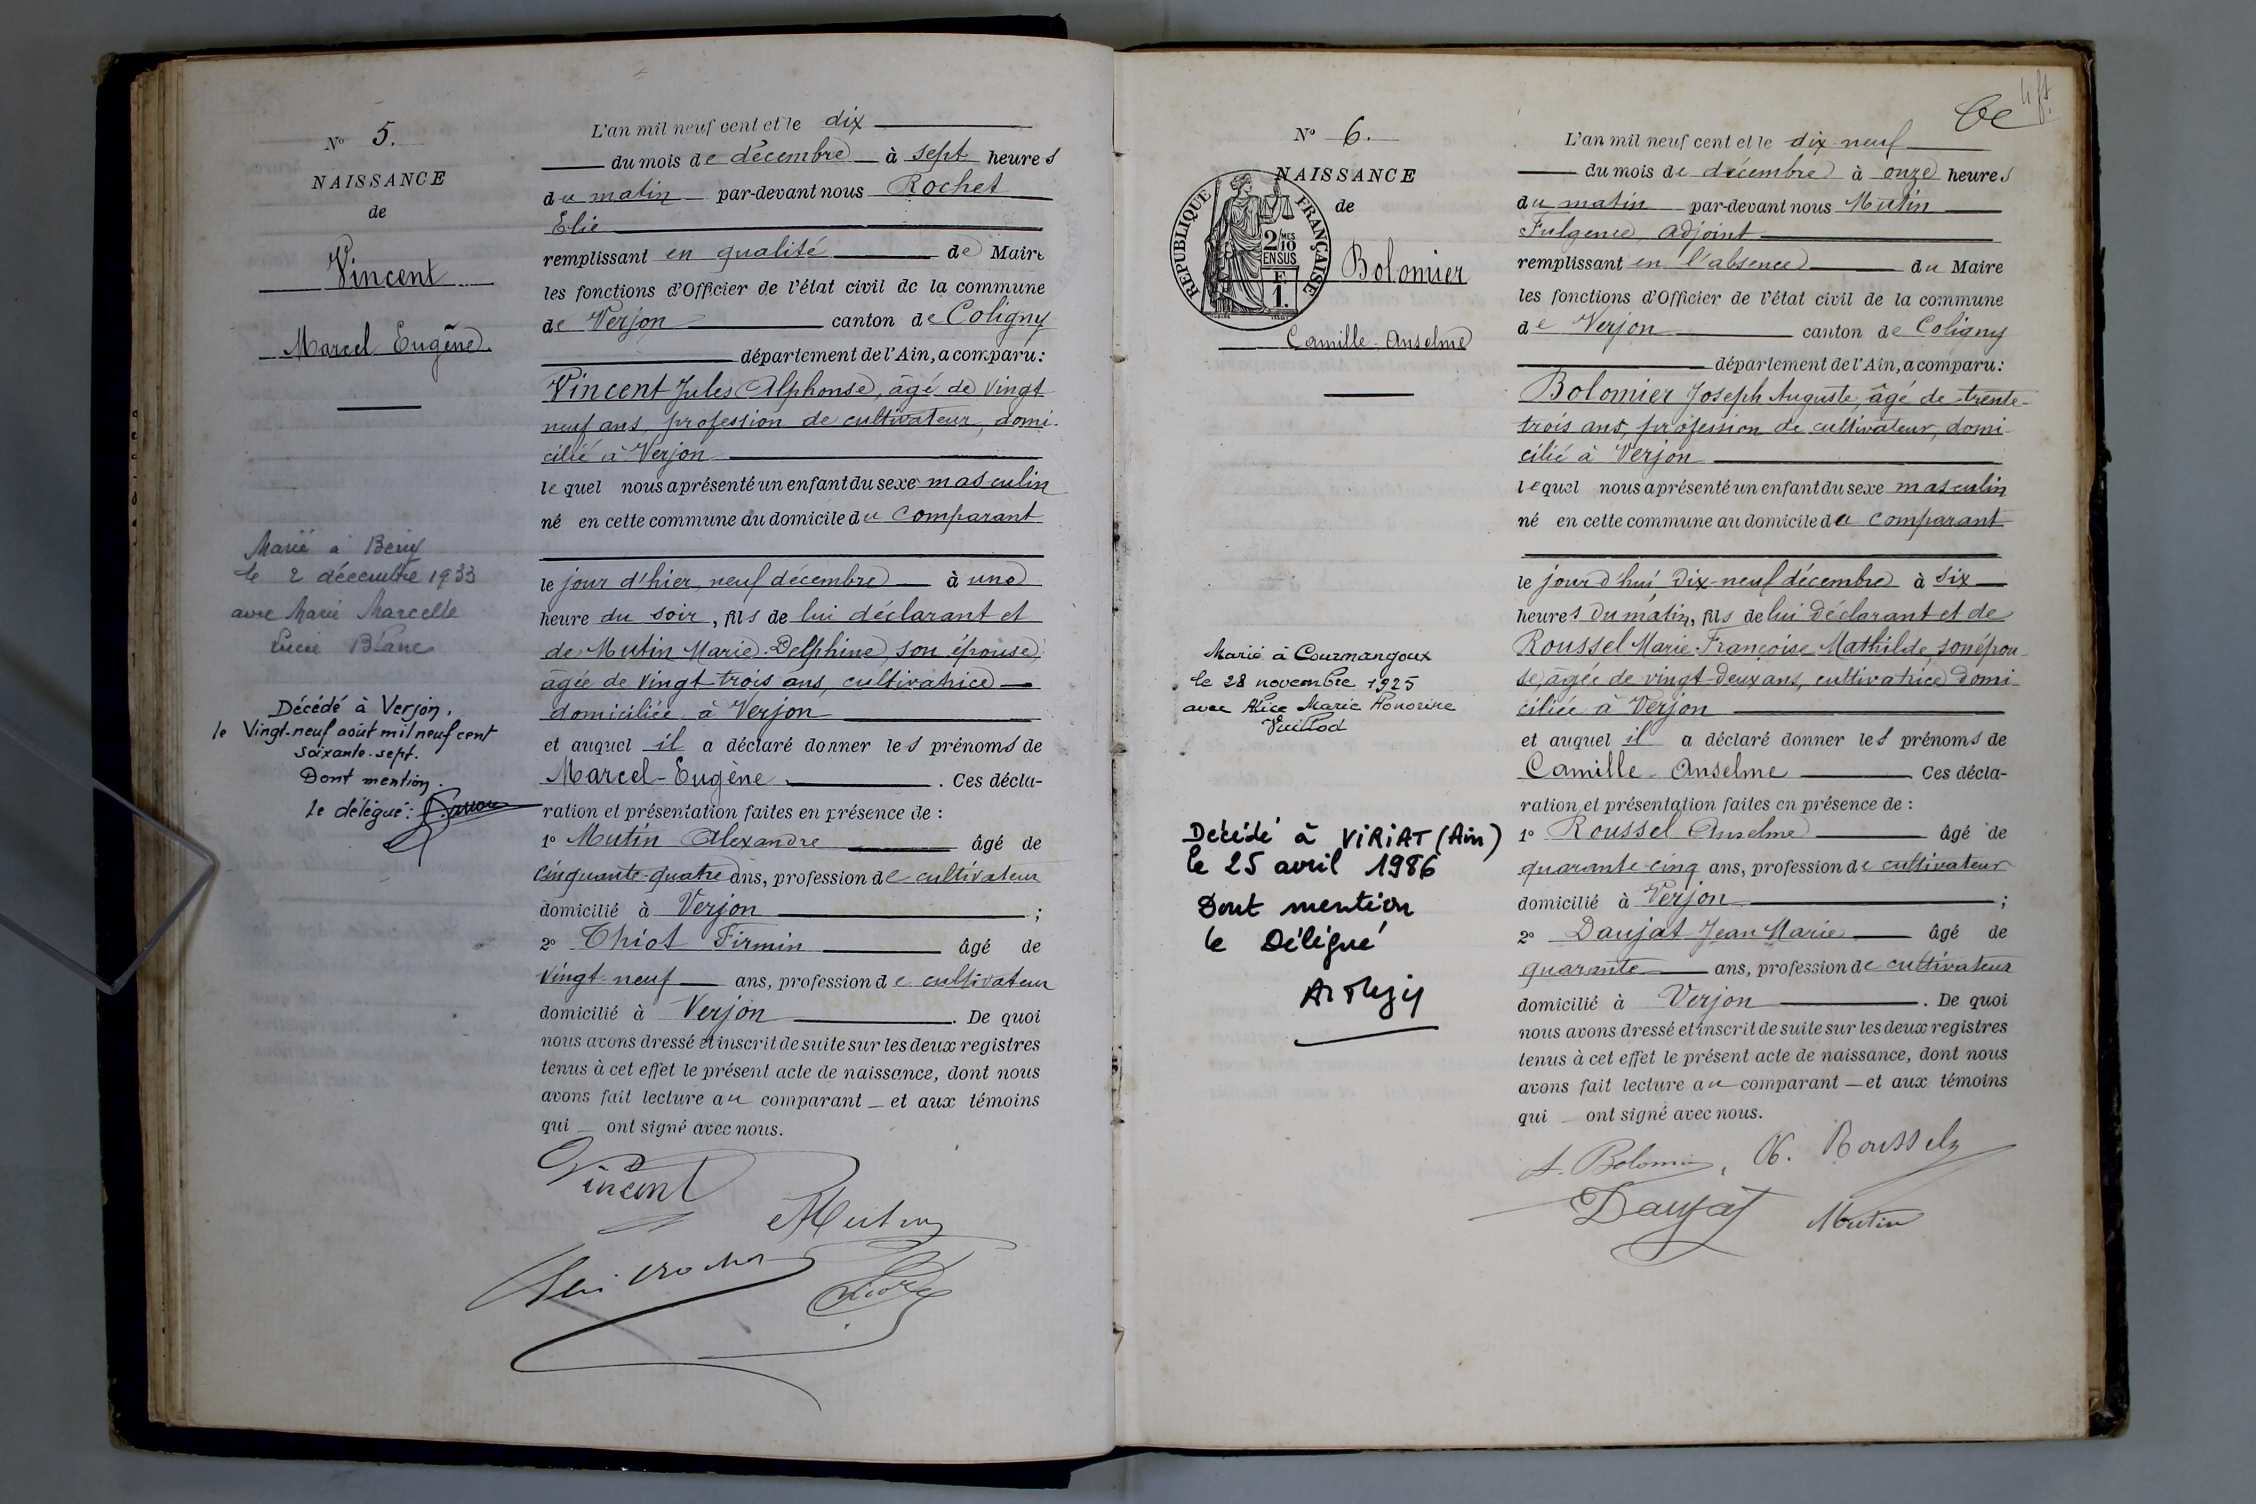 N° 5.
NAISSANCE
de
Vincent
Marcel Eugène.
Marié à Beny
le 2 décembre 1933
avec Marie Marcelle
Lucie Blanc
Décédé à Verjon.
le Vingt-neuf août mil neuf cent
soixante-sept.
Dont mention.
Le délégué:
L'an mil neuf cent et le dix
du mois de décembre à sept heures
du matin par-devant nous Rochet
Elie
remplissant en qualité de Maire
les fonctions d'Officier de l'état civil de la commune
de Verjon canton de Coligny
département de l'Ain, a comparu:
Vincent Jules Alphonse, âgé de vingt
neuf ans, profession de cultivateur, domi-
cilié à Verjon
lequel nous a présenté un enfant du sexe masculin
né en cette commune au domicile du comparant
le jour d'hier, neuf décembre à une
heure du soir, fils de lui déclarant et
de Mutin Marie-Delphine, son épouse,
âgée de vingt-trois ans, cultivatrice
domiciliée à Verjon
et auquel il a déclaré donner les prénoms de
Marcel-Eugène. Ces décla-
ration et présentation faites en présence de :
1° Mutin Alexandre âgé de
cinquante-quatre ans, profession de cultivateur
domicilié à Verjon ;
2° Chiot Firmin âgé de
vingt-neuf ans, profession de cultivateur
domicilié à Verjon. De quoi
nous avons dressé et inscrit de suite sur les deux registres
tenus à cet effet le présent acte de naissance, dont nous
avons fait lecture au comparant et aux témoins
qui ont signé avec nous.
Vincent
Mutin
Elie Rochet
4 ft.
N° 6.
NAISSANCE
de
RÉPUBLIQUE FRANÇAISE
2/10 MES
EN SUS
F
1.
Bolomier
Camille-Anselme
Marié à Courmangoux
le 28 novembre 1925
avec Alice Marie Honorine
Vuillod
Décédé à VIRIAT (Ain)
le 25 avril 1986
Dont mention
le Délégué
L'an mil neuf cent et le dix-neuf
du mois de décembre à onze heures
du matin par-devant nous Mutin
Fulgence, adjoint
remplissant en l'absence du Maire
les fonctions d'Officier de l'état civil de la commune
de Verjon canton de Coligny
département de l'Ain, a comparu:
Bolomier Joseph Auguste, âgé de trente-
trois ans, profession de cultivateur, domi-
cilié à Verjon
lequel nous a présenté un enfant du sexe masculin
né en cette commune au domicile du comparant
le jour d'hui, dix-neuf décembre à six
heures du matin, fils de lui déclarant et de
Roussel Marie-Françoise Mathilde, son épou-
se, âgée de vingt-deux ans, cultivatrice domi-
ciliée à Verjon
et auquel il a déclaré donner les prénoms de
Camille-Anselme Ces décla-
ration et présentation faites en présence de :
1° Roussel Anselme âgé de
quarante-cinq ans, profession de cultivateur
domicilié à Verjon ;
2° Daujat Jean Marie âgé de
quarante ans, profession de cultivateur
domicilié à Verjon. De quoi
nous avons dressé et inscrit de suite sur les deux registres
tenus à cet effet le présent acte de naissance, dont nous
avons fait lecture au comparant et aux témoins
qui ont signé avec nous.
Roussel
Daujat
Mutin